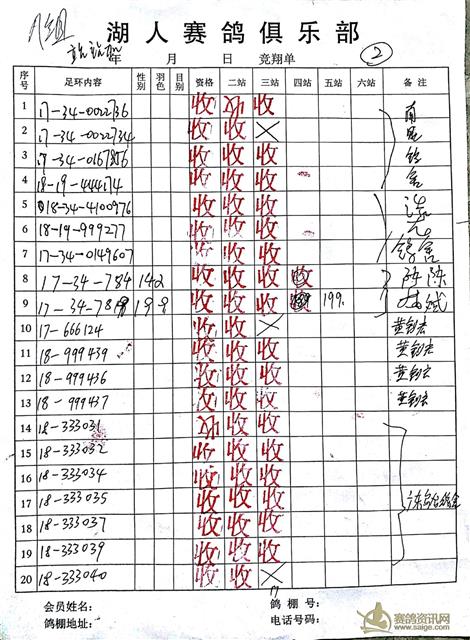 湖人赛鸽俱乐部
年 月 日 竞翔单 2
序号 足环内容 性别 羽色 目别 资格 二站 三站 四站 五站 六站 备注
1 17-34-0022736 收 收 收
2 17-34-0022734 收 收 ×
3 17-34-0167856 收 收 收
4 18-19-444174 收 收 收 舍
5 18-34-4100976 收 收 收
6 18-19-999277 收 收 收
7 17-34-0149607 收 收 收 鸽舍
8 17-34-784142 收 收 收 收
9 收 收 收 199.
10 17-666124 收 收 ×
11 18-999439 收 收 收
12 18-999436 收 收 收
13 18-999437 收 收 收
14 18-333031 收 收 收
15 18-333032 收 收 收
16 18-333034 收 收 收
17 18-333035 收 收 收
18 18-333037 收 收 收
19 18-333039 收 收 收
20 18-333040 收 收 ×
会员姓名: 鸽棚号:
鸽棚地址: 电话号码:
赛鸽资讯网
www.saige.com